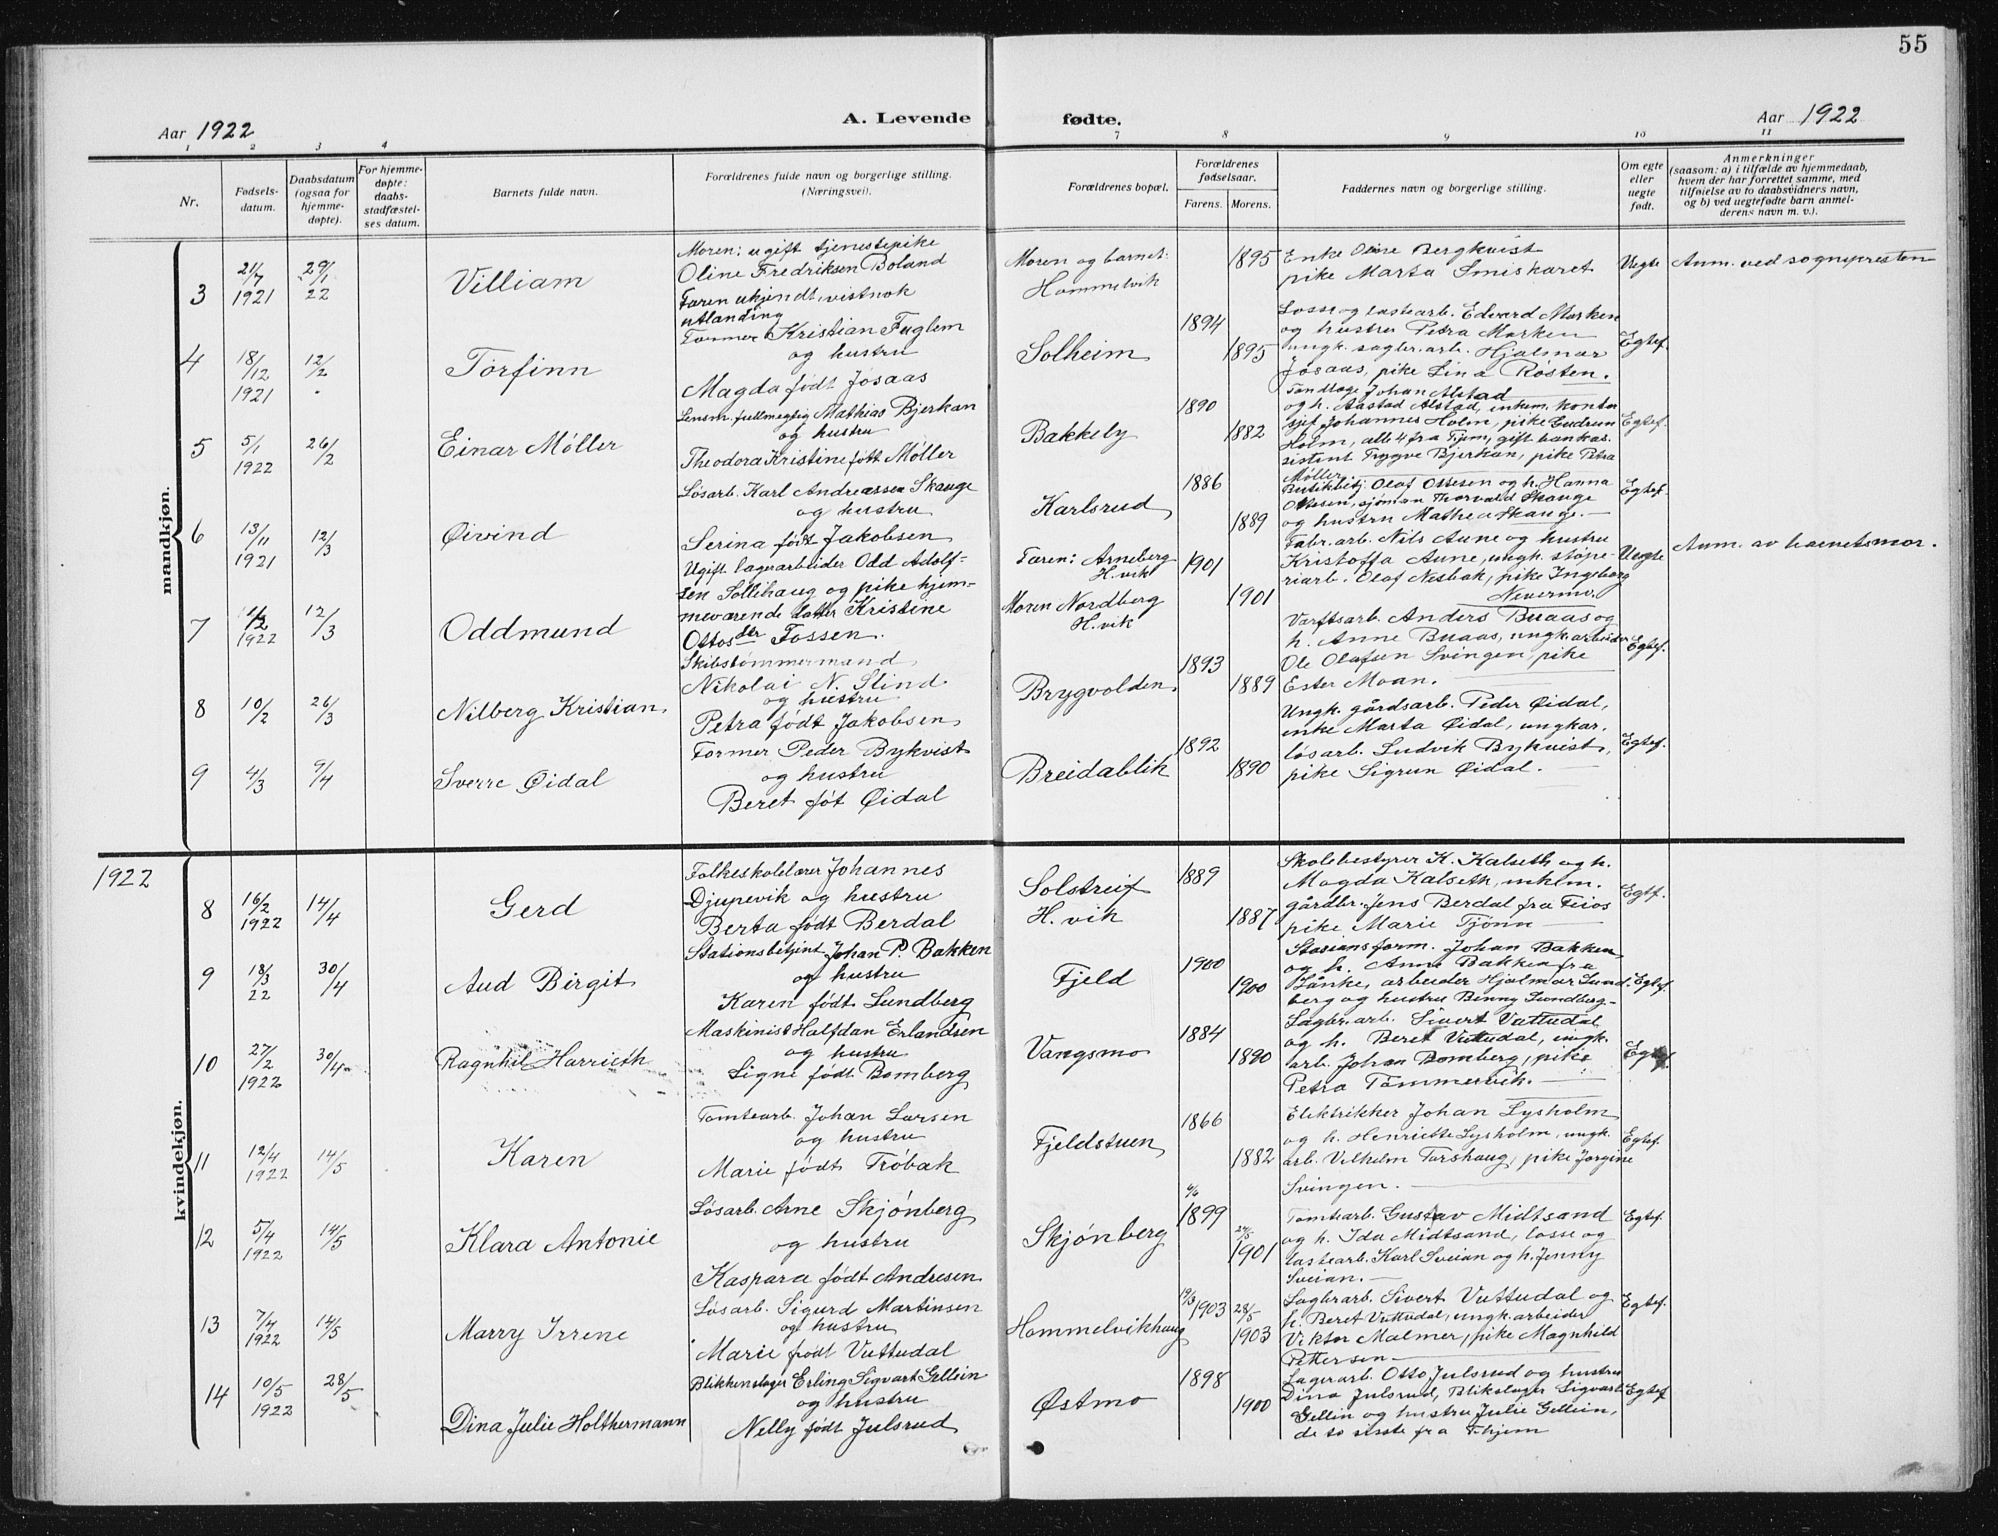 55
Aar 1922 A. Levende fødte. Aar 1922
1 2 3 4 7 8 9 10 11
Nr.
Fødsels-
datum.
Daabsdatum
(ogsaa for
hjemme-
døpte).
For hjemme-
døpte:
daabs-
stadfæstel-
ses datum.
Barnets fulde navn.
Forældrenes fulde navn og borgerlige stilling.
(Næringsvei).
Forældrenes bopæl.
Forældrenes
fødselsaar.
Farens. Morens.
Faddernes navn og borgerlige stilling.
Om egte
eller
uegte
født.
Anmerkninger
(saasom: a) i tilfælde av hjemmedaab,
hvem der har forrettet samme, med
tilføielse av to daabsvidners navn,
og b) ved uegtefødte barn anmel-
derens navn m. v.).
mandkjøn.
3
21/7
1921
29/1
22
Villiam
Moren: ugift tjenestepike
Oline Fredriksen Boland
Faren ukjendt, vistnok
utlanding
Moren og barnet:
Hommelvik
1895
Enke Oline Bergkvist
pike Marta Smiskaret
Uegte
Anm. ved sognepresten
4
18/12
1921
12/2
Torfinn
Former Kristian Fuglem
og hustru
Magda født Josaas
Solheim
1894
1895
Losse og lastearb. Edvard Marken
og hustru Petra Marken
ungk. sagbr.arb. Hjalmar
Josaas, pike Lina Rosten.
Egtef.
5
5/1
1922
26/2
Einar Møller
Lensm. fullmegtig Mathias Bjerkan
og hustru
Theodora Kristine født Møller
Bakkely
1890
1882
Tandlæge Johan Alstad
og h. Aastad Alstad, enkem. kontor
sjef Johannes Holm, pike Gudrun
Holm, alle 4 fra Tjem, gift bankas.
sistent Trygve Bjerkan, pike Petra
Møller
Egtef.
6
13/11
1921
12/3
Øivind
Løsarb. Karl Andreassen Skauge
og hustru
Serina født Jakobsen
Karlsrud
1886
1889
Butikbetj. Olaf Ottesen og h. Hanna
Ottesen, sjøman Thorvald Skauge
og hustru Mathea Skauge.
Egtef.
7
1/2
1922
12/3
Oddmund
Ugift lagerarbeider Odd Adolf-
sen Sollihaug og pike hjem-
meværende datter Kristine
Ottosdtr Fossen.
Faren: Arneberg
H.vik
Moren Nordberg
H.vik
1901
1901
Fabr.arb. Nils Aune og hustru
Kristoffa Aune, ungk. støpe-
riarb. Olaf Nesbak, pike Ingeborg
Nevermo.
Uegte
Anm. av barnets mor.
8
10/2
26/3
Nilberg Kristian
Skibstømmermand
Nikolai N. Slind
og hustru
Petra født Jakobsen
Brygvolden
1893
1889
Varftsarb. Anders Buaas og
h. Anne Buaas, ungk arbeider
Ole Olafsen Svingen, pike
Ester Moan.
Egtef.
9
4/3
9/4
Sverre Øidal
Former Peder Bykvist
og hustru
Beret føt Øidal
Breidablik
1892
1890
Ungk. gårdsarb. Peder Øidal,
enke Marta Øidal, ungkar.
løsarb. Ludvik Bykvist,
pike Sigrun Øidal.
Egtef.
1922
kvindekjøn.
8
16/2
1922
14/4
Gerd
Folkeskolelærer Johannes
Djupevik og hustru
Berta født Berdal
Solstreif
H.vik
1889
1887
Skolebestyrer K. Kalseth og h.
Magda Kalseth, enkem.
gårdbr. Jens Berdal fra Feios
pike Marie Tjønn
Egtf.
9
18/3
22
30/4
Aud Birgit
Stationsbetjent Johan P. Bakken
og hustru
Karen født Lundberg
Fjeld
1900
1900
Stasionsform. Johan Bakken
og h. Anne Bakken fra
Lånke, arbeider Hjalmar Lund-
berg og hustru Benny Lundberg
Egtef.
10
27/2
1922
30/4
Ragnhil Harrieth
Maskinist Halfdan Erlandsen
og hustru
Signe født Bomberg
Vangsmo
1884
1890
Sagbr.arb. Sivert Vuttudal
og h. Beret Vuttudal, ungk.
arb. Johan Bomberg, pike
Petra Tømmervik.
Egtef.
11
12/4
1922
14/5
Karen
Tomtearb. Johan Larsen
og hustru
Marie født Trøbak
Fjeldstuen
1866
1882
Elektrikker Johan Lysholm
og h. Henriette Lysholm, ungk.
arb. Vilhelm Torshaug, pike Jørgine
Svingen.
Egtef.
12
5/4
1922
14/5
Klara Antonie
Løsarb. Arne Skjønberg
og hustru
Kaspara født Andresen
Skjønberg
1899
1901
Tomtearb. Gustav Midtsand
og h. Ida Midtsand, losse og
lastearb. Karl Sveian og h. Jenny
Sveian.
Egtef.
13
7/4
1922
14/5
Marry Irrene
Løsarb. Sigurd Martinsen
og hustru
Marie født Vuttudal
Hommelvikhaug
1903
28/5
1903
Sagbrarb. Sivert Vuttudal og
h. Beret Vuttudal, ungk. arbeider
Viktor Malmer, pike Magnhild
Pettersen
Egtef.
14
10/5
1922
28/5
Dina Julie Holthermann
Blikkenslager Erling Sigvart Gellein
og hustru
Nelly født Julsrud
Østmo
1898
1900
Lagerarb. Otto Julsrud og hustru
Dina Julsrud, Blikslager Sigvart
Gellin og hustru Julie Gellein,
de to sisste fra Thjem
Egtef